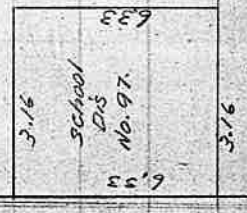 6.33
3.16
School
Dis
No. 97.
3.16
6.33